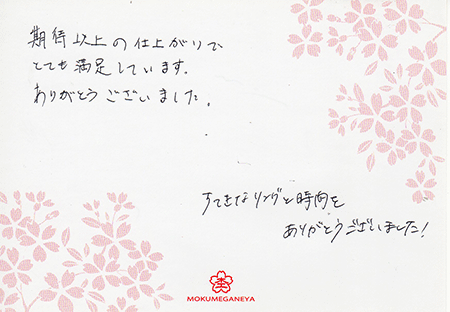 期待以上の仕上がりで
とても満足しています.
ありがとうございました.
すてきなリングと時間を
ありがとうございました!
MOKUMEGANEYA